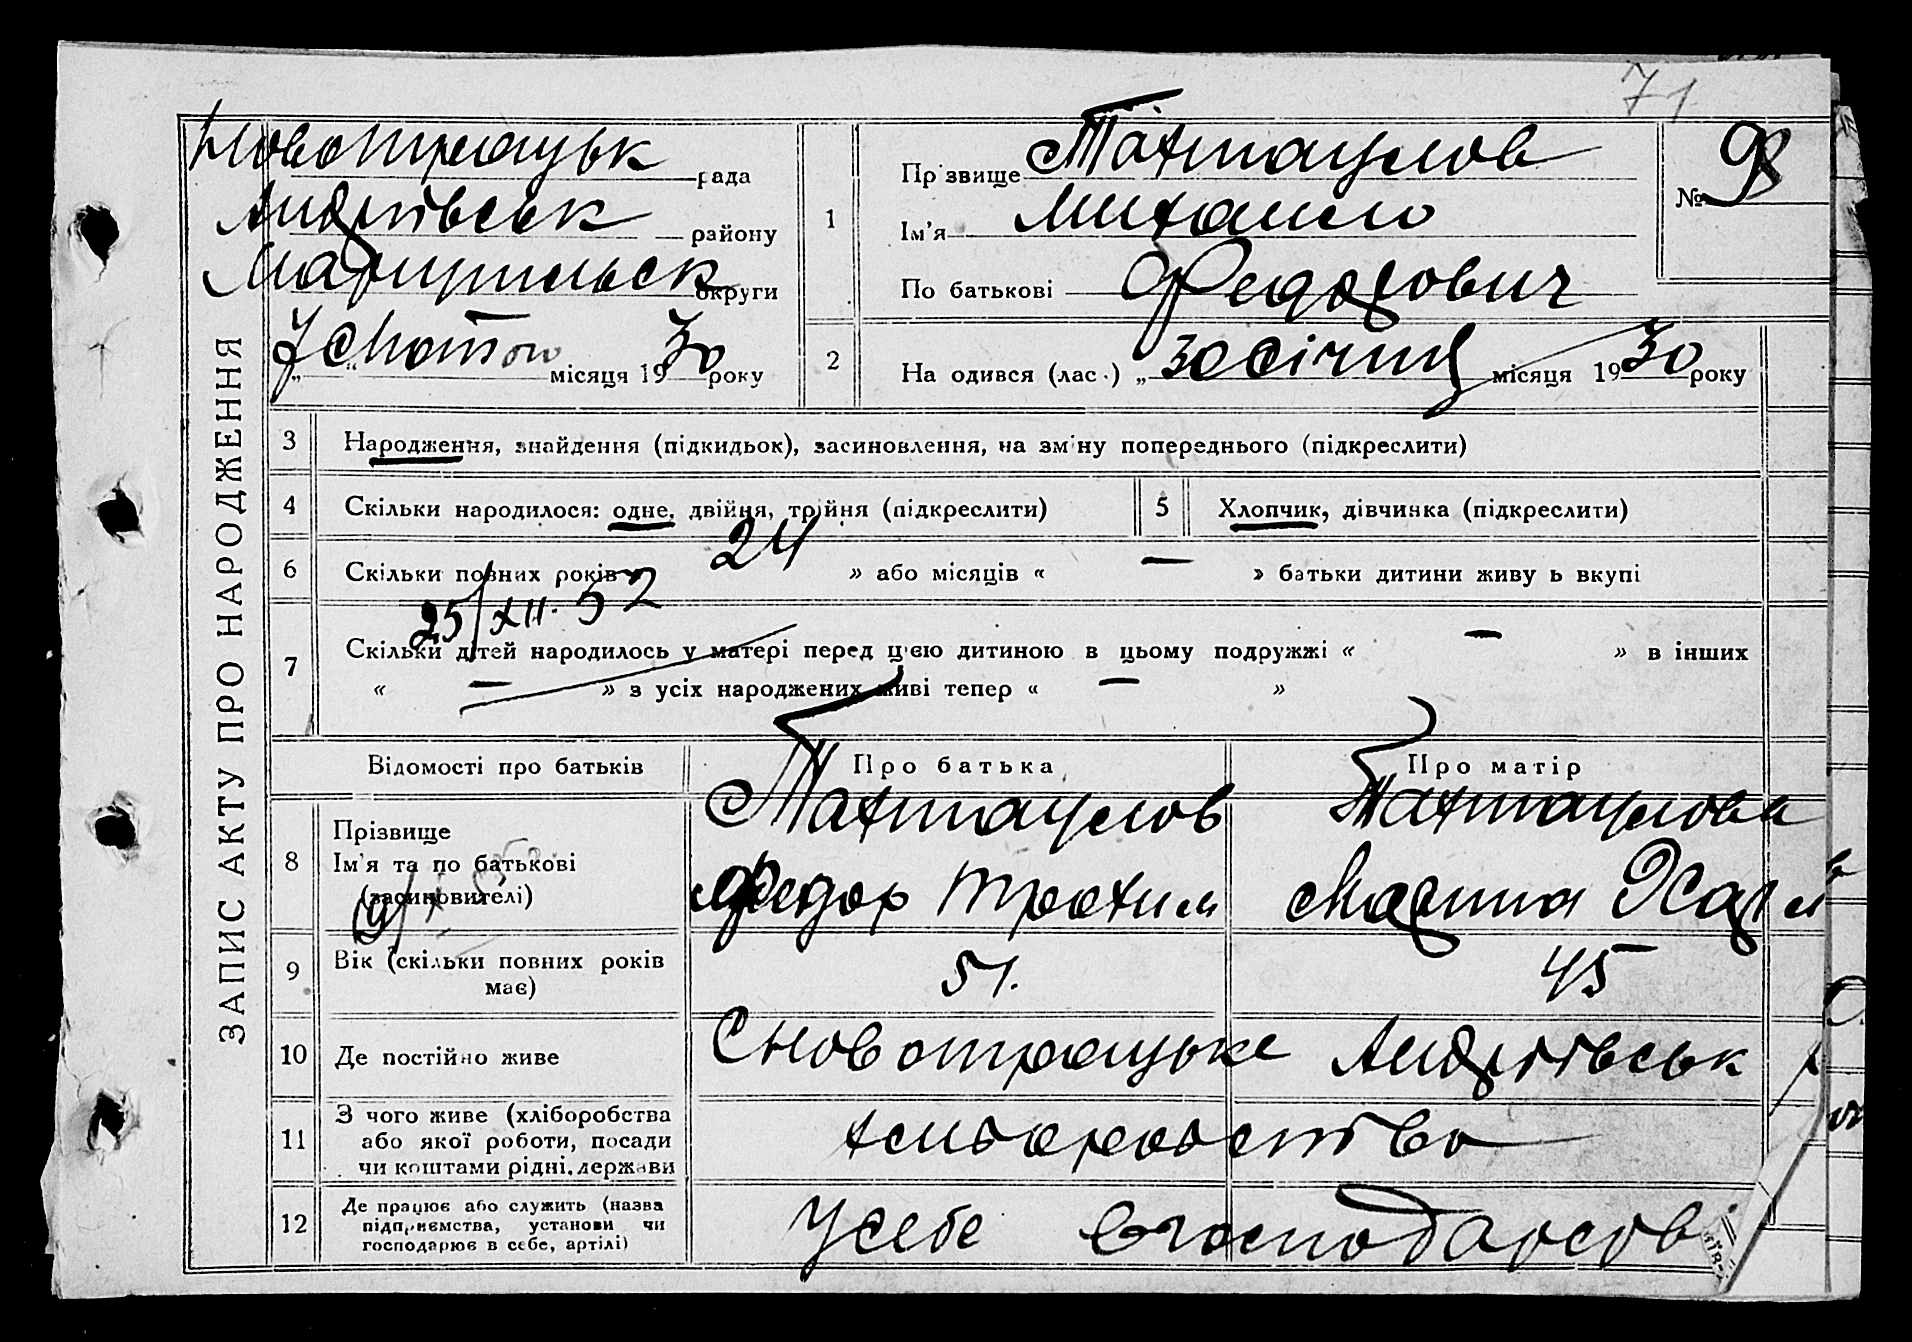 71
Новотроацьк рада
Андріївськ району
Маріупільск округи
„7“ Лютого місяця 1930 року
ЗАПИС АКТУ ПРО НАРОДЖЕННЯ
1
Прізвище Тахтаулов
Ім'я Михаило
По батькові Федорович
№ 98
2
На одився (лас.) „30 січня місяця 1930 року
3 Народження, знайдення (підкидьок), засиновлення, на зміну попереднього (підкреслити)
4 Скільки народилося: одне, двійня, трійня (підкреслити)
5 Хлопчик, дівчинка (підкреслити)
6 Скільки повних років « 24 » або місяців « — » батьки дитини живу ь вкупі
25/XII. 52
7 Скільки дітей народилось у матері перед цією дитиною в цьому подружжі « — » в інших
« — » з усіх народжених живі тепер « — »
Відомості про батьків
Про батька
Про матір
8 Прізвище
Ім'я та по батькові
(засиновителі)
Тахтаулов
Федор Трохим
Тахтаулова
Марина Хар
9 Вік (скільки повних років
має)
51.
45
10 Де постійно живе
С Новотроацьке Андріївськ р
11 З чого живе (хліборобства
або якої роботи, посади
чи коштами рідні, держави
хлиборобство
12 Де працює або служить (назва
підприємства, установи чи
господарює в себе, артілі)
У себе в господарстві